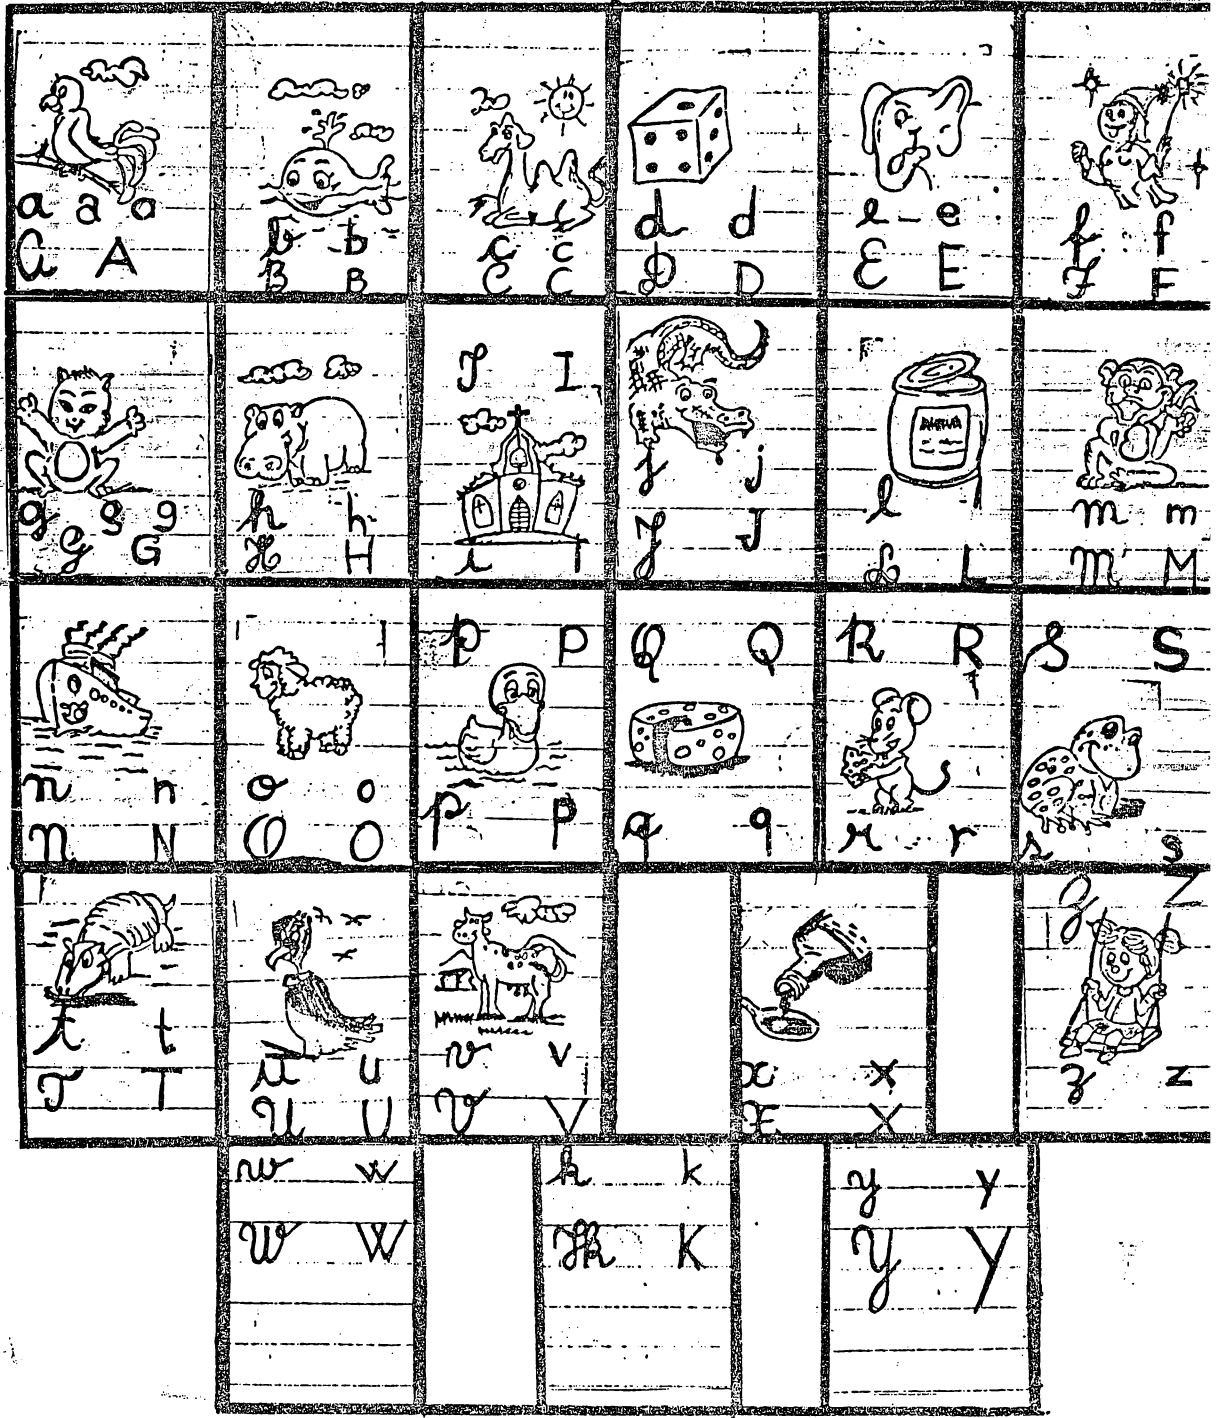 a a a
A A
b b
B B
c c
C C
d d
D D
e e
E E
f f
F F
g g g
G G
h h
H H
I I
i i
j j
J J
l l
L L
m m
M M
n n
N N
o o
O O
P P
p p
Q Q
q q
R R
r r
S S
s s
t t
T T
u u
U U
v v
V V
x x
X X
Z Z
z z
w w
W W
k k
K K
y y
Y Y